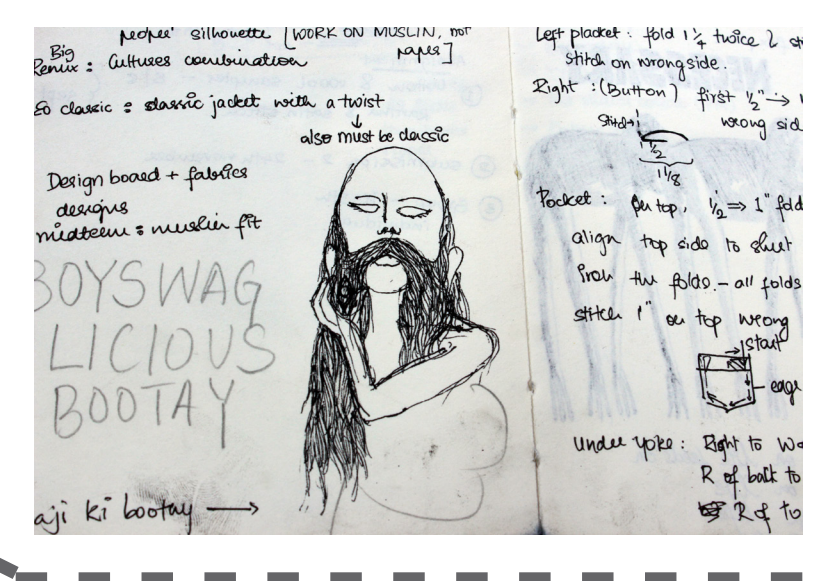 silhouette [WORK ON MUSLIN, not
papes]
Big
Remix : Cultuses combination
So classic : classic jacket with a twist
↓
also must be classic
Design board + fabrics
designs
midteem : muslin fit
BOYSWAG
LICIOUS
BOOTAY
aji ki bootay →
Left placket : fold 1 1/4 twice &
stitch on wrong side.
Right : (Button) first 1/2" →
wrong sid
Stitch→
1/2
1 1/8
Pocket : on top, 1/2 ⇒ 1" fold
align top side to
iron the folds. – all folds
stitch 1" on top wrong
start
edge
Under yoke : Right to
R of back to
R of to